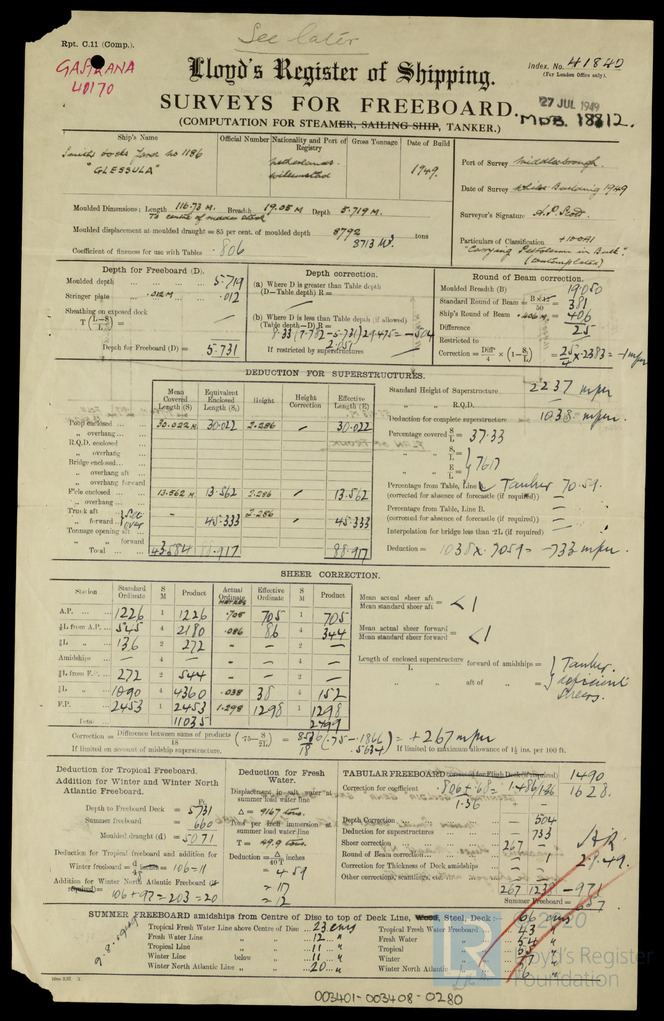 See later
Rpt. C.11 (Comp.).
GASTRANA
40170
Index. No. 41840
(For London Office only).
Lloyd's Register of Shipping.
27 JUL 1949
SURVEYS FOR FREEBOARD.
MDB. 18812.
(COMPUTATION FOR STEAMER, SAILING SHIP, TANKER.)
Ship's Name
Official Number
Nationality and Port of Registry
Gross Tonnage
Date of Build
Port of Survey Middlesbrough
Smiths Docks Yard No 1186
"GLESSULA"
Netherlands
Willemstad
1949.
Date of Survey Whilst Building 1949
Surveyor's Signature A.P. Scott
Moulded Dimensions: Length 116.73 M. Breadth 19.05 M Depth 5.719 M.
Moulded displacement at moulded draught = 85 per cent. of moulded depth 8792 tons
8713
Coefficient of fineness for use with Tables .806
Particulars of Classification +100A1
"Carrying Petroleum in Bulk"
(contemplated)
Depth for Freeboard (D).
Moulded depth 5.719
Stringer plate .012 M .012
Sheathing on exposed deck
T (L-S / L) =
Depth for Freeboard (D) = 5.731
Depth correction.
(a) Where D is greater than Table depth
(D—Table depth) R =
(b) Where D is less than Table depth (if allowed)
(Table depth—D) R =
8.33 (7.782 - 5.731) 29.475 = -504
2.051
If restricted by superstructures
Round of Beam correction.
Moulded Breadth (B) 19.050
Standard Round of Beam = B×12/50 = 381
Ship's Round of Beam .406 M = 406
Difference 25
Restricted to
Correction = Diff/4 × (1 - S₁/L) = 25/4 × .2383 = -1 mm
DEDUCTION FOR SUPERSTRUCTURES.
Mean Covered Length (S)
Equivalent Enclosed Length (S₁)
Height
Height Correction
Effective Length (E)
Poop enclosed 30.022 M 30.022 2.286 / 30.022
„ overhang
R.Q.D. enclosed
„ overhang
Bridge enclosed
„ overhang aft
„ overhang forward
F'cle enclosed 13.562 M 13.562 2.286 / 13.562
„ overhang
Trunk aft
„ forward
- 45.333 2.286 45.333
Tonnage opening aft
„ „ forward
Total 43.584 88.917 88.917
Standard Height of Superstructure 2237 mm
„ „ R.Q.D.
Deduction for complete superstructure 1038 mm.
Percentage covered S/L = 37.33
„ „ S₁/L =
„ „ E/L =
76.17
Percentage from Table, Line Tanker 70.59.
(corrected for absence of forecastle (if required))
Percentage from Table, Line B.
(corrected for absence of forecastle (if required))
Interpolation for bridge less than .2L (if required)
Deduction = 1038 × .7059 = -733 mm.
SHEER CORRECTION.
Station
Standard Ordinate
S M
Product
Actual Ordinate
METRES
Effective Ordinate
S M
Product
A.P. 1226 1 1226 .705 705 1 705
⅙L from A.P. 545 4 2180 .086 86 4 344
⅓L „ 136 2 272 — — 2 —
Amidships — 4 — — — 4 —
⅓L from F.P. 272 2 544 — — 2 —
⅙L „ 1090 4 4360 .038 38 4 152
F.P. 2453 1 2453 1.298 1298 1 1298
Total 11035 2499
Mean actual sheer aft / Mean standard sheer aft = <1
Mean actual sheer forward / Mean standard sheer forward = <1
Length of enclosed superstructure forward of amidships =
L
„ „ aft of „ =
Tanker.
efficient
Correction = Difference between sums of products / 18 (.75 - S/2L) = 8536/18 (.75 - .1866) = +267 mm
.5634
If limited on account of midship superstructure.
If limited to maximum allowance of 1½ ins. per 100 ft.
Deduction for Tropical Freeboard.
Addition for Winter and Winter North Atlantic Freeboard.
Depth to Freeboard Deck = 5731
Summer freeboard = 660
Moulded draught (d) = 5071
Deduction for Tropical freeboard and addition for
Winter freeboard = 106 = 11
Addition for Winter North Atlantic Freeboard (if required) =
106 + 97 = 203 = 20
Deduction for Fresh Water.
Displacement in salt water at summer load water line
Δ = 9167 tons.
Tons per inch immersion at summer load water line
T = 49.9 tons.
Deduction = Δ/40T inches
= 4.59
= 117
= 12
TABULAR FREEBOARD corrected for Flush Deck (if required) 1490
Correction for coefficient .806 + .68 = 1.486 / 1.36 1628.
1.36
Depth Correction — 504
Deduction for superstructures — 733
Sheer correction 267 —
Round of Beam correction — 1
Correction for Thickness of Deck amidships — —
Other corrections, scantlings, etc.
267 1238 -971
Summer Freeboard = 657
SUMMER FREEBOARD amidships from Centre of Disc to top of Deck Line, Wood, Steel, Deck:— 66 cms
Tropical Fresh Water Line above Centre of Disc 23 cms
Fresh Water Line „ „ 12 „
Tropical Line „ „ 11 „
Winter Line below „ 11 „
Winter North Atlantic Line „ „ 20 „
Tropical Fresh Water Freeboard 43 „
Fresh Water „ 54 „
Tropical „ 55 „
Winter „ 77 „
Winter North Atlantic „
9.8.1949
© 2020
LR
Lloyd's Register
Foundation
003401-003408-0280